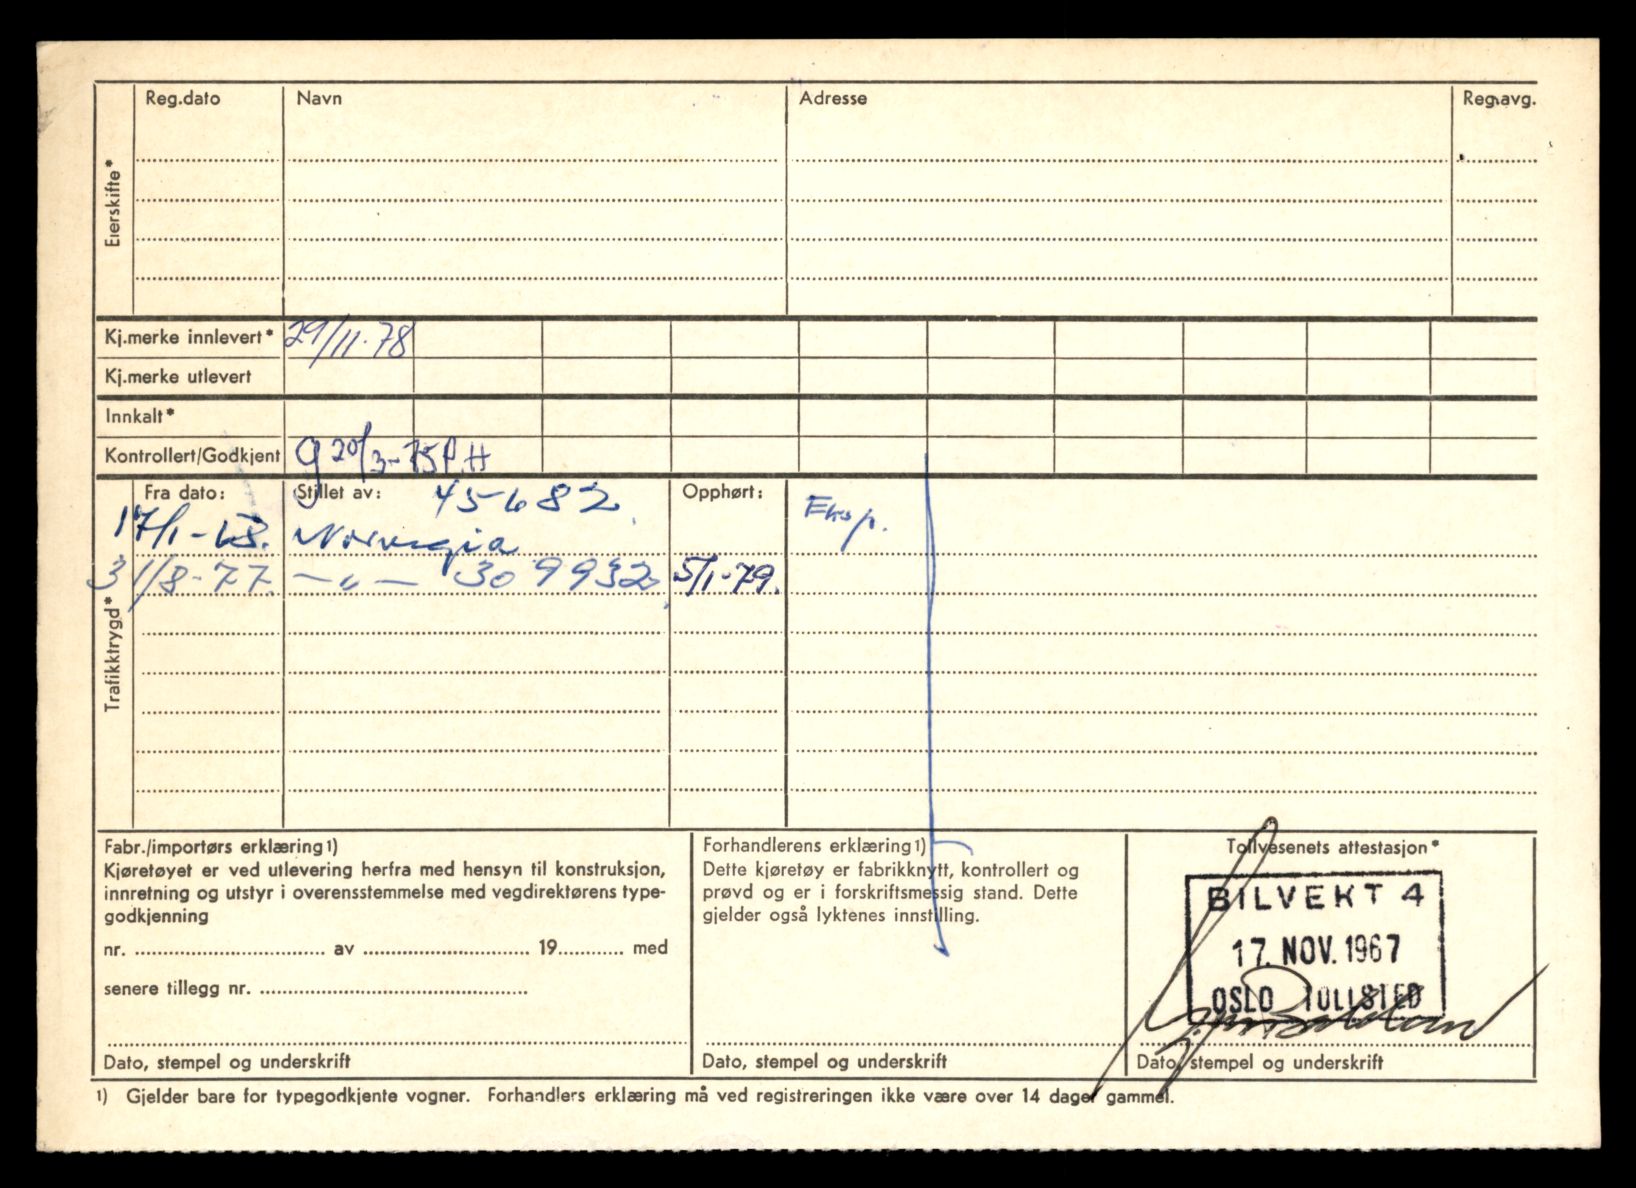 Reg.dato Navn Adresse Reg.avg.
Eierskifte*
Kj.merke innlevert* 29/11-78
Kj.merke utlevert
Innkalt*
Kontrollert/Godkjent g 20/3-75 P.H
Trafikktrygd*
Fra dato: Stillet av: 45682 Opphørt: Eksp.
17/1-68. Norvegia
31/8-77. —„— 309932 5/1-79.
Fabr./importørs erklæring1)
Kjøretøyet er ved utlevering herfra med hensyn til konstruksjon,
innretning og utstyr i overensstemmelse med vegdirektørens type-
godkjenning
nr. av 19 med
senere tillegg nr.
Dato, stempel og underskrift
Forhandlerens erklæring1)
Dette kjøretøy er fabrikknytt, kontrollert og
prøvd og er i forskriftsmessig stand. Dette
gjelder også lyktenes innstilling.
Dato, stempel og underskrift
Tollvesenets attestasjon*
BILVEKT 4
17. NOV. 1967
OSLO TOLLSTED
Dato, stempel og underskrift
1) Gjelder bare for typegodkjente vogner. Forhandlers erklæring må ved registreringen ikke være over 14 dager gammel.